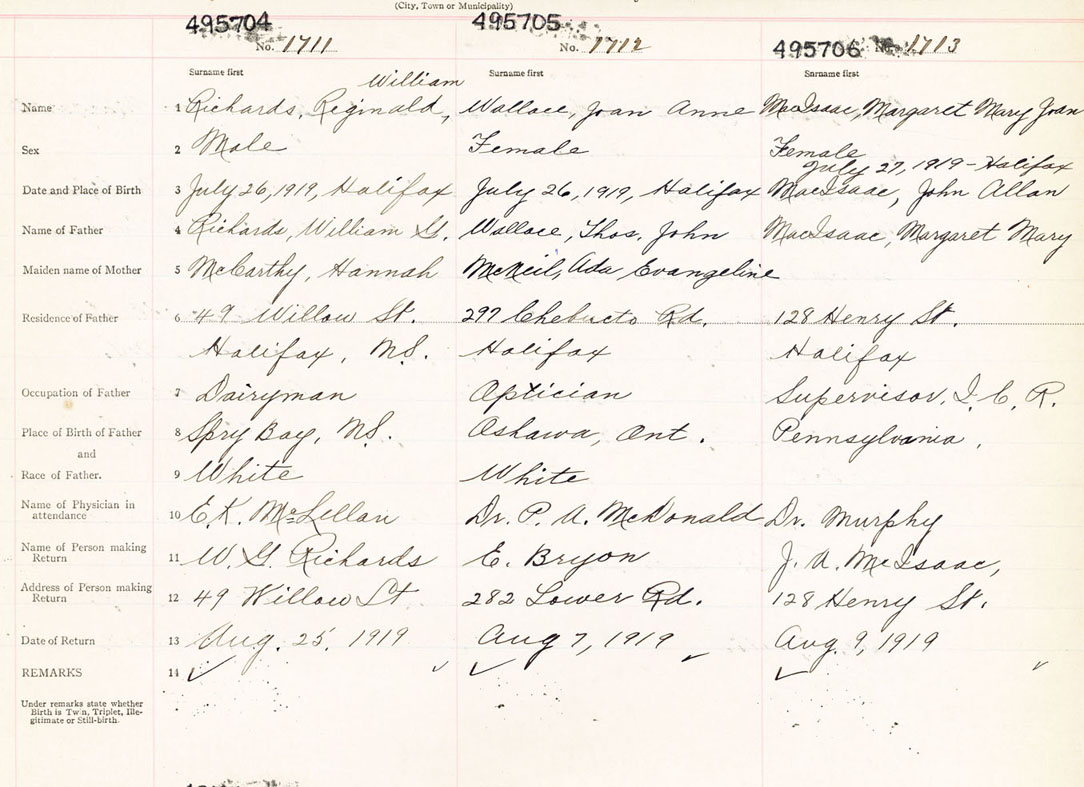 (City, Town or Municipality)
495704 495705 495706
No. 1711 No. 1712 No. 1713
Surname first Surname first Surname first
William
Name 1 Richards, Reginald, Wallace, Joan Anne MacIsaac, Margaret Mary Joan
Sex 2 Male Female Female
July 27, 1919 - Halifax
Date and Place of Birth 3 July 26, 1919, Halifax July 26, 1919, Halifax MacIsaac, John Allan
Name of Father 4 Richards, William G. Wallace, Thos. John MacIsaac, Margaret Mary
Maiden name of Mother 5 McCarthy, Hannah McNeil, Ada Evangeline
Residence of Father 6 49 Willow St. 297 Chebucto Rd. 128 Henry St.
Halifax, N.S. Halifax Halifax
Occupation of Father 7 Dairyman Optician Supervisor, I. C. R.
Place of Birth of Father 8 Spry Bay, N.S. Oshawa, Ont. Pennsylvania,
and
Race of Father. 9 White White
Name of Physician in
attendance 10 E.K. McLellan Dr. P. A. McDonald Dr. Murphy
Name of Person making
Return 11 W. G. Richards E. Bryon J. A. McIsaac,
Address of Person making
Return 12 49 Willow St 282 Lower Rd. 128 Henry St.
Date of Return 13 Aug. 25, 1919 Aug 7, 1919 Aug. 9, 1919
REMARKS 14 ✓ ✓ ✓ ✓ ✓ ✓
Under remarks state whether
Birth is Twin, Triplet, Ille-
gitimate or Still-birth.